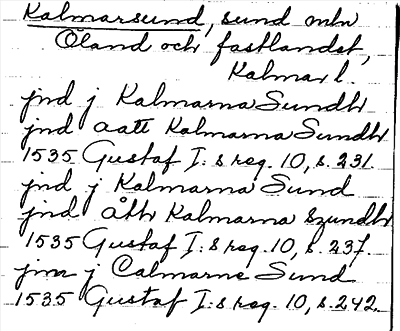 Kalmarsund, sund mln
Öland och fastlandet,
Kalmar l.
jnd j Kalmarna Sundh
jnd aatt Kalmarna Sundh
1535 Gustaf I:s reg. 10, s. 231
jnd j Kalmarna Sund
jnd åth Kalmarna Szundh
1535 Gustaf I:s reg. 10, s. 237.
jnn j Calmarne Sund
1535 Gustaf I:s reg. 10, s. 242.